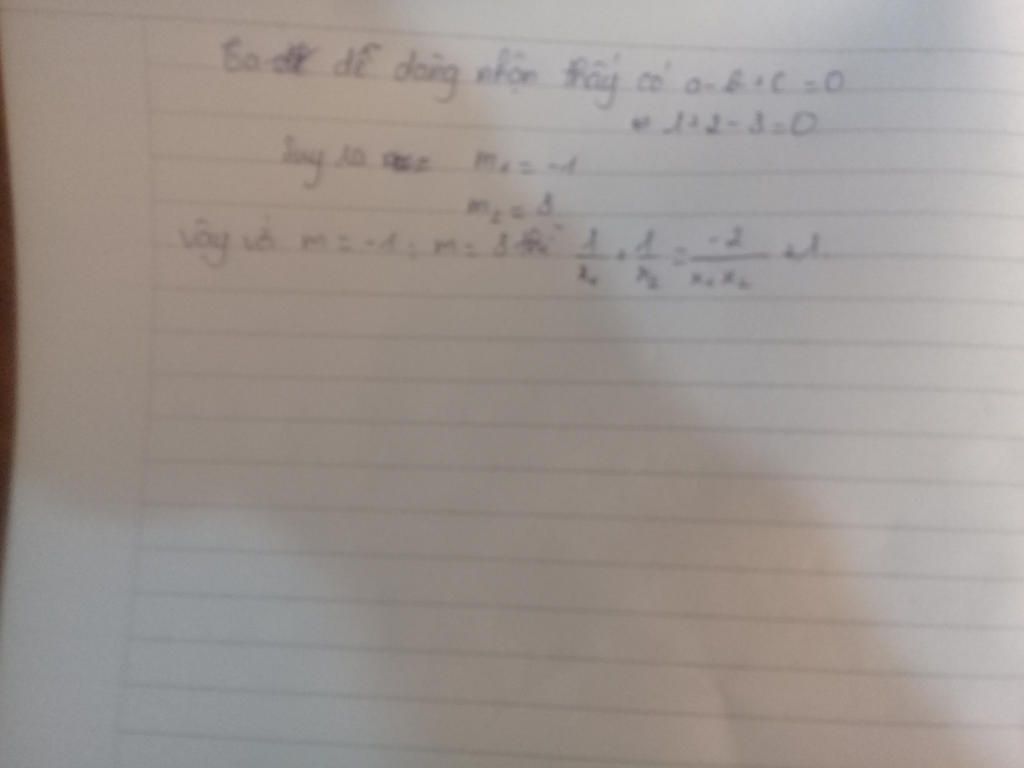 Ta dễ dàng nhận thấy có a-b+c=0
⇔ 1+2-3=0
Suy ra m₁ = -1
m₂ = 3
Vậy với m = -1; m = 3 thì 1/x₁ + 1/x₂ = -2/x₁x₂ +1.